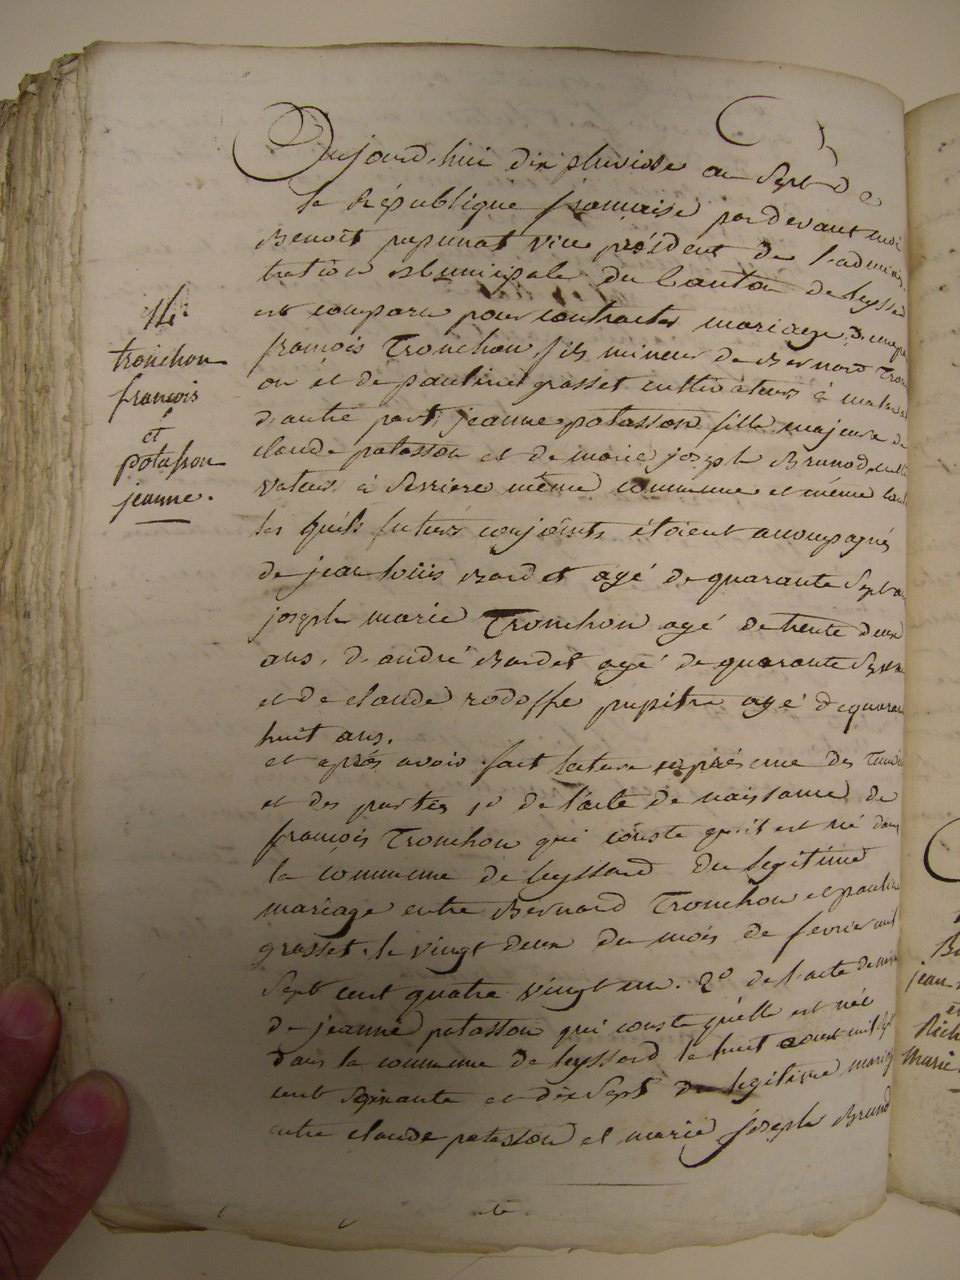 Aujourd'hui dix pluviose an Sept de
la République francaise par devant moi
Benoit papunat vice président de l'adminis
tration Municipale du Canton de leyssard
est comparu pour contracter mariage D'une par
françois Tronchon fils mineur de Bernard Tron
on et de pauline grasset cultivateurs à
d'autre part jeanne potasson fille majeure de
claude potasson et de marie joseph Brunod culti
vateurs à Serriere même commune et même Cant
les quels futurs conjoints étoient acompagnés
de jean louis Bordet agé de quarante Sept an
joseph marie Tronchon agé de trente deux
ans, d'andré Bordet agé de quarante
et de claude rodoffe pupitre agé de quaran
huit ans.
et après avoir fait lecture en présence des Temoi
et des parties 1º de l'acte de naissance de
françois Tronchon qui conste qu'il est né dans
la commune de leyssard du legitime
mariage entre Bernard Tronchon et pauline
grasset le vingt deux du mois de fevrier mil
Sept cent quatre vingt un. 2º de l'acte de nais
de jeanne potasson qui conste qu'elle est née
dans la commune de leyssard le huit aout mil Sept
cent Soixante et dix Sept du legitime mariag
entre claude potasson et marie joseph Brunod
14.
tronchon
françois
et
potasson
jeanne.
jean
et
Rich
Marie